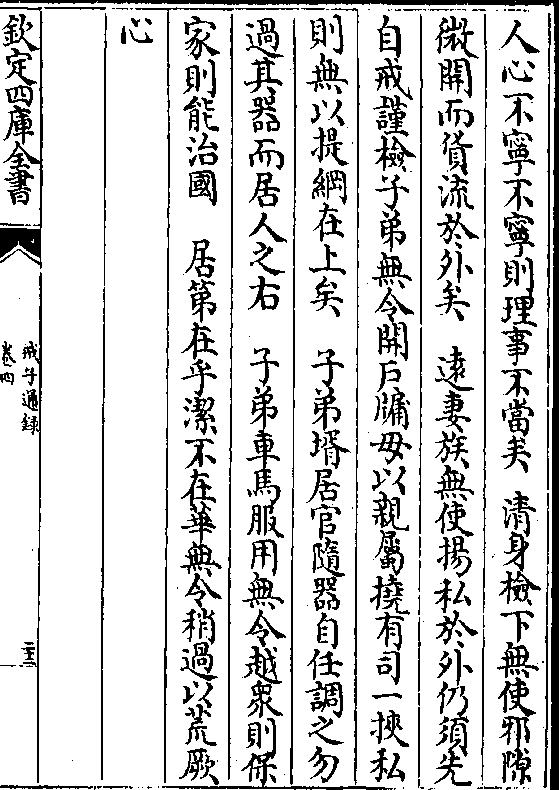 人心不寧不寧則理事不當矣　清身檢下無使邪隙
微開而貨流於外矣　遠妻族無使揚私於外仍須先
自戒謹檢子弟無令開户牖毋以親屬撓有司一挾私
則無以提綱在上矣　子弟壻居官隨器自任調之勿
過其器而居人之右　子弟車馬服用無令越衆則保
家則能治國　居第在乎潔不在華無令稍過以荒厥
心
欽定四庫全書
戒子通録
卷四